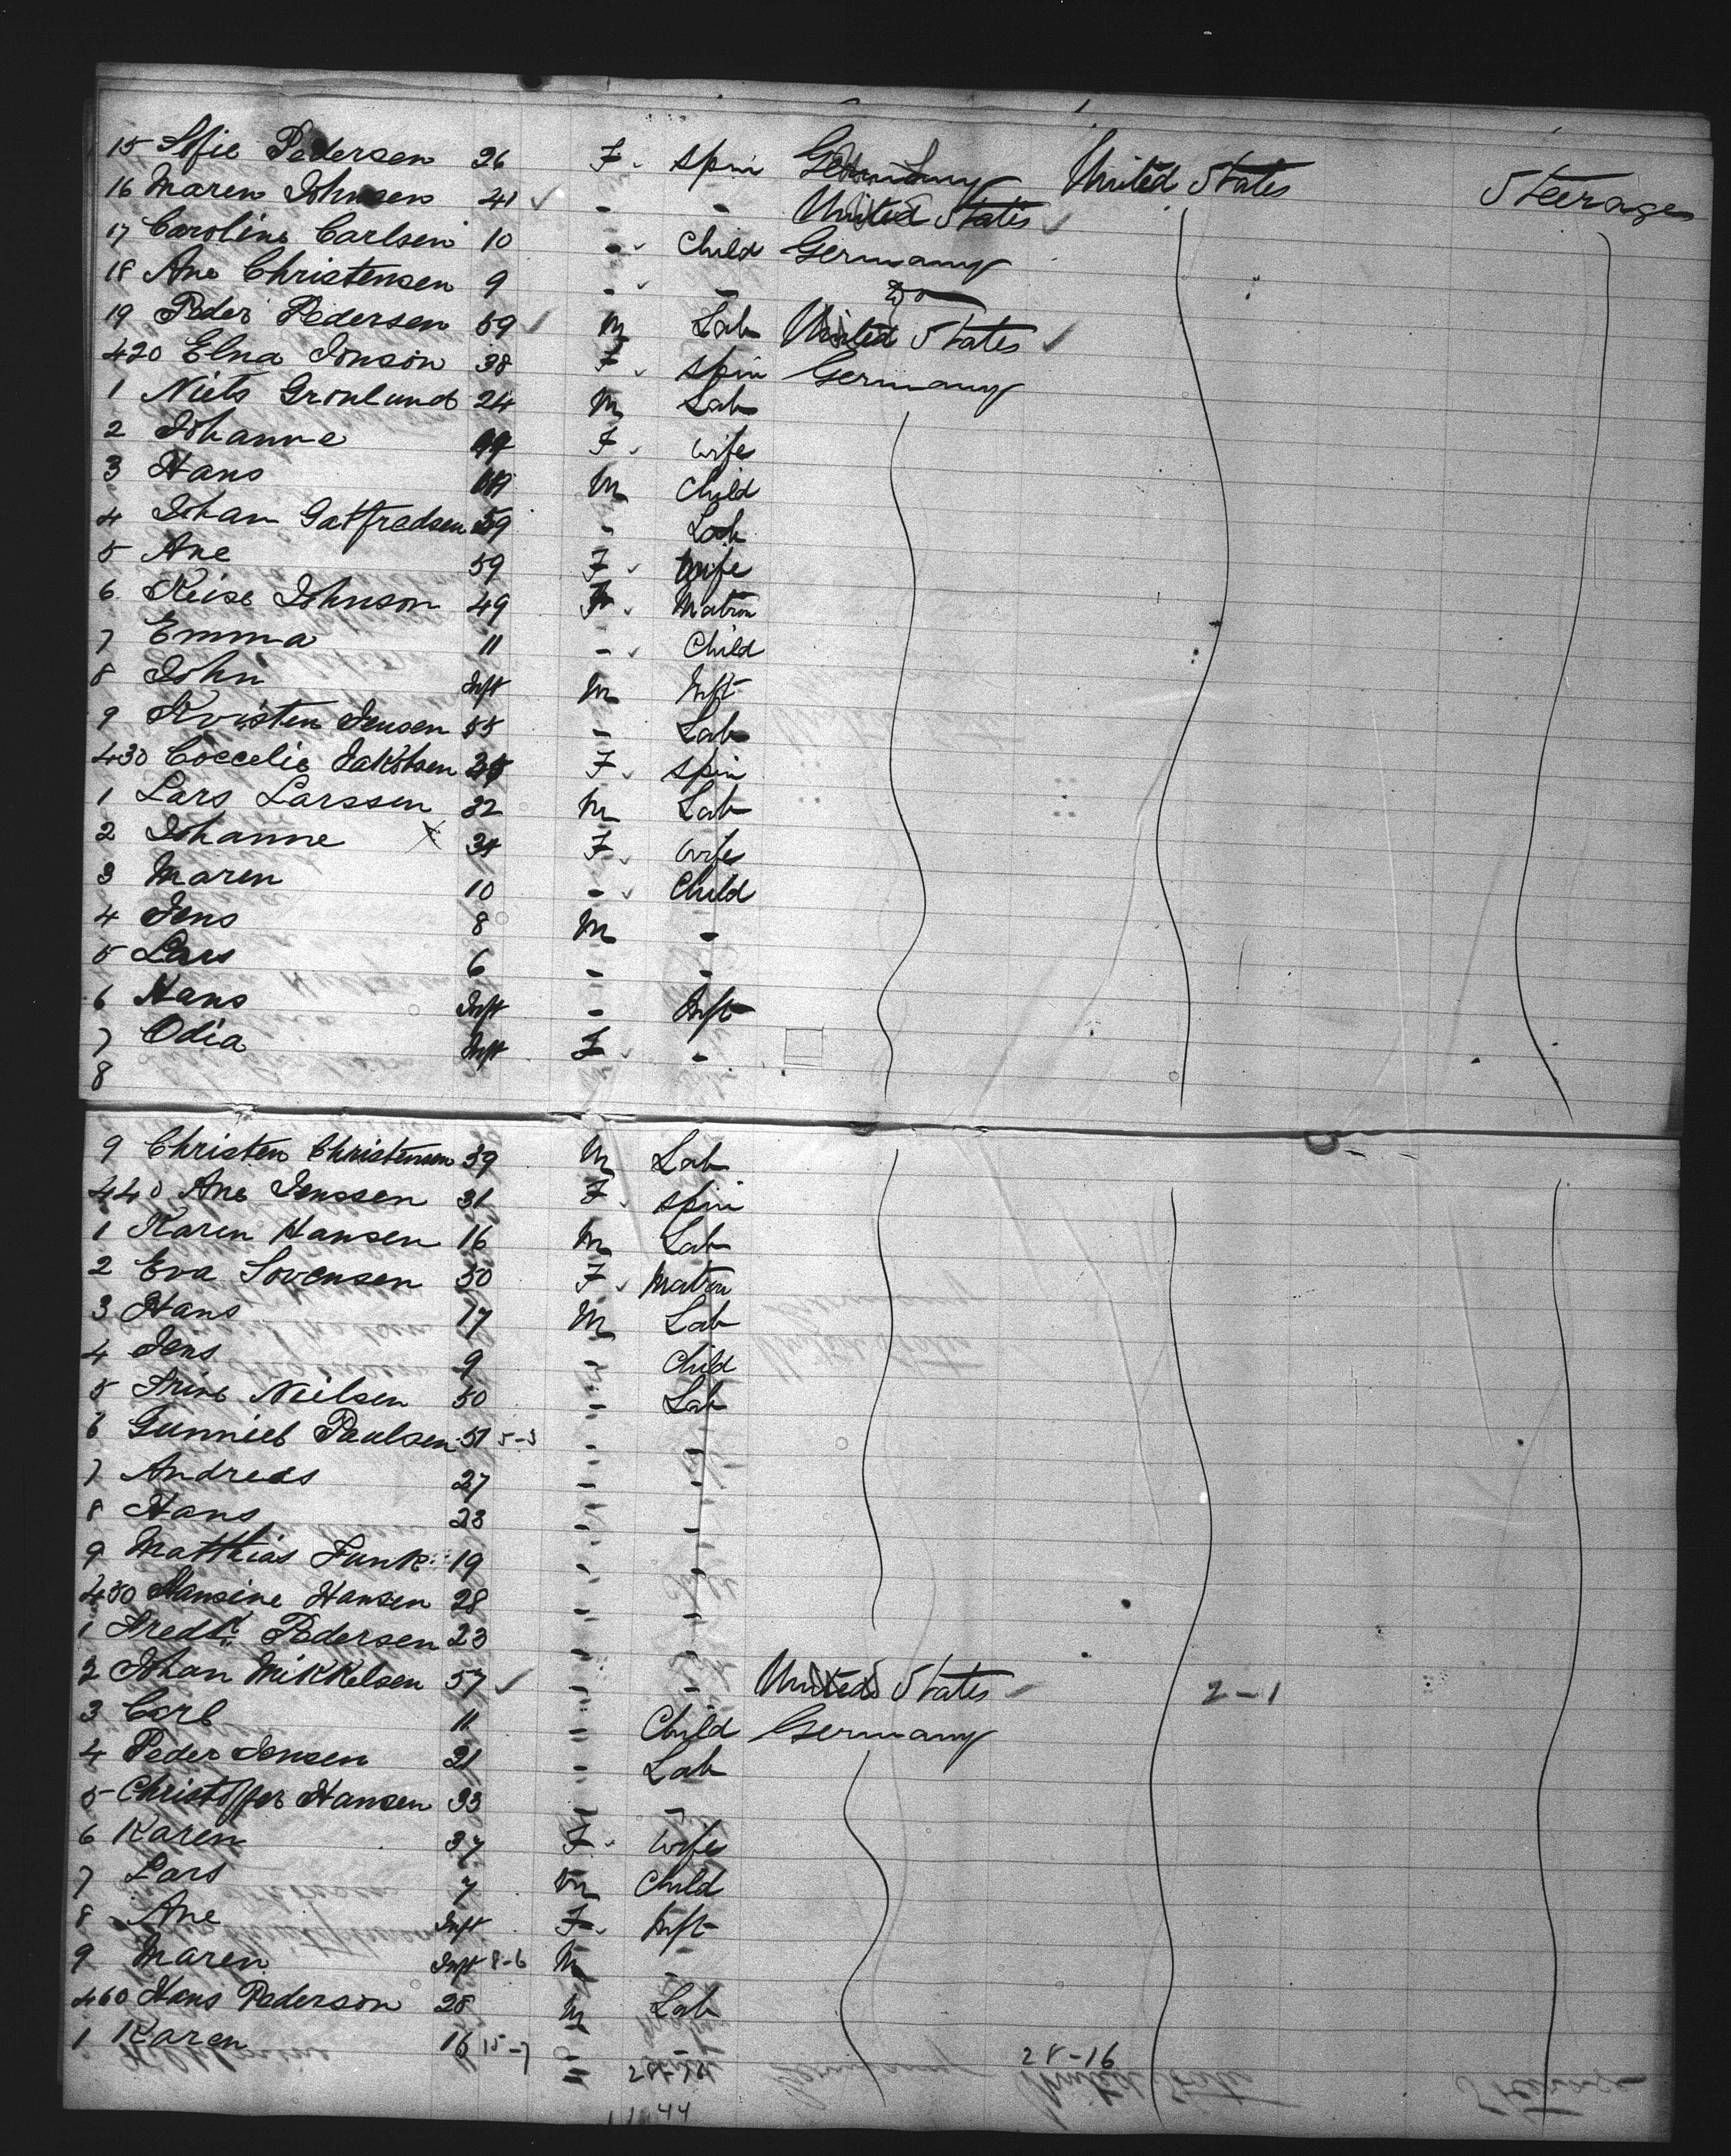 15 Sofie Pedersen 26 F spin Germany United States Steerage
16 Maren Johnsen 41 ✓ - - United States ✓
17 Caroline Carlsen 10 - Child Germany
18 Ane Christensen 9 - - Do
19 Peder Pedersen 59 ✓ M Lab United States ✓
420 Elna Jonson 38 F spin Germany
1 Niels Gronlund 24 M Lab
2 Johanne F wife
3 Hans M Child
4 Johan Gatfredsen 59 - Lab
5 Ane 59 F wife
6 Johnson 49 F Matron
7 Emma 11 - Child
8 John Inft M Inft
9 Kristen Jensen 55 - Lab
430 Coccelie Jakobsen F spin
1 Lars Larssen 32 M Lab
2 Johanne x 34 F wife
3 Maren 10 - Child
4 Jens 8 M -
5 Lars 6 - -
6 Hans Inft - Inft
7 Odia Inft F -
8
9 Christen Christensen 39 M Lab
440 Ane Jenssen 31 F spin
1 Karen Hansen 16 M Lab
2 Eva Sorensen 50 F Matron
3 Hans 17 M Lab
4 Jens 9 - Child
5 Trine Nielsen 50 - Lab
6 Paulsen 51 5-3 - -
7 Andreas 27 - -
8 Hans 23 - -
9 Matthias Funk 19 - -
450 Hansine Hansen 28 - -
1 Fredk Pedersen 23 - -
2 Johan Mikkelsen 57 ✓ - - United States ✓ 2-1
3 Carl 11 = Child Germany
4 Peder Jensen 21 - Lab
5 Christoffer Hansen 33 - -
6 Karen 37 F wife
7 Lars 7 M Child
8 Ane Inft F Inft
9 Maren Inft 8-6 M -
460 Hans Pederson 28 M Lab
1 Karen 16 15-7 - -
28-16
44